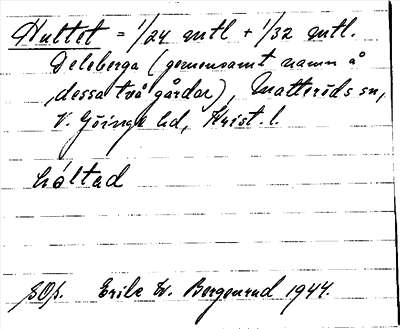 Hultet = 1/24 mtl + 1/32 mtl.
Deleberga (gemensamt namn å
dessa två gårdar), Matteröds sn,
V. Göinge hd, Krist. l.
hóltad
sOs. Erik W. Bergenrud 1944.